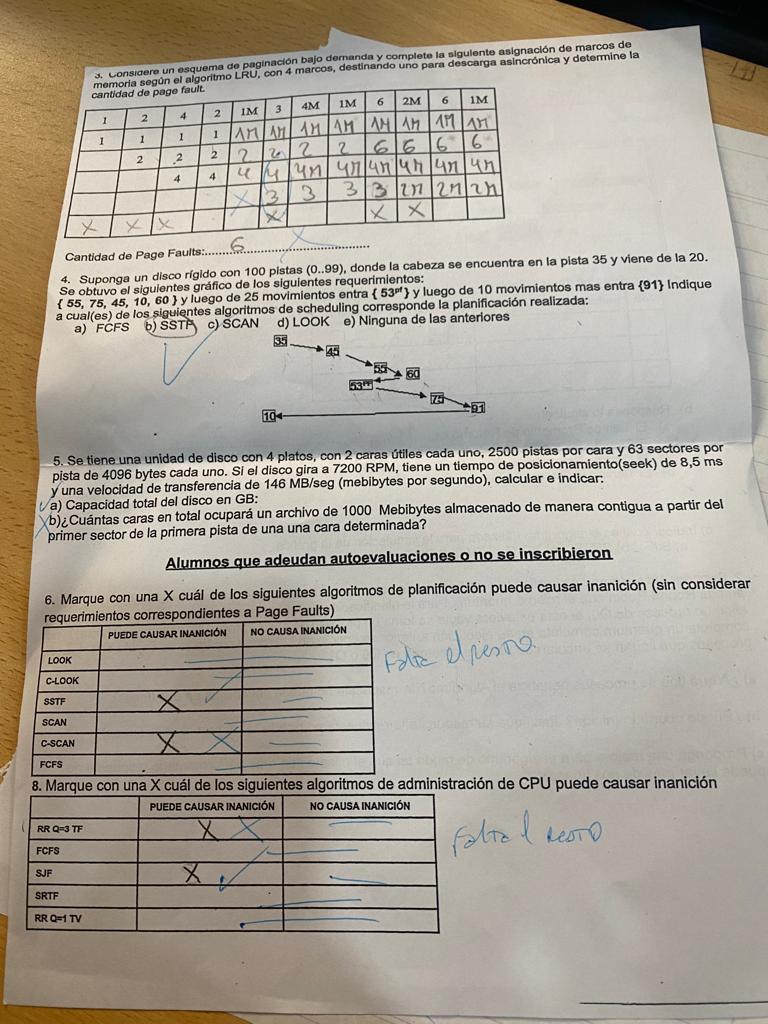 3. Considere un esquema de paginación bajo demanda y complete la siguiente asignación de marcos de
memoria según el algoritmo LRU, con 4 marcos, destinando uno para descarga asincrónica y determine la
cantidad de page fault.
1 2 4 2 1M 3 4M 1M 6 2M 6 1M
1 1 1 1 1M 1M 1M 1M 1M 1M 1M 1M
2 2 2 2 2 2 2 6 6 6 6
4 4 4 4 4M 4M 4M 4M 4M 4M
X 3 3 3 3 2M 2M 2M
X X X X X X
Cantidad de Page Faults:..... 6 .....
4. Suponga un disco rígido con 100 pistas (0..99), donde la cabeza se encuentra en la pista 35 y viene de la 20.
Se obtuvo el siguientes gráfico de los siguientes requerimientos:
{ 55, 75, 45, 10, 60 } y luego de 25 movimientos entra { 53pf } y luego de 10 movimientos mas entra {91} Indique
a cual(es) de los siguientes algoritmos de scheduling corresponde la planificación realizada:
a) FCFS b) SSTF c) SCAN d) LOOK e) Ninguna de las anteriores
35
45
55
60
53PF
75
91
10
5. Se tiene una unidad de disco con 4 platos, con 2 caras útiles cada uno, 2500 pistas por cara y 63 sectores por
pista de 4096 bytes cada uno. Si el disco gira a 7200 RPM, tiene un tiempo de posicionamiento(seek) de 8,5 ms
y una velocidad de transferencia de 146 MB/seg (mebibytes por segundo), calcular e indicar:
a) Capacidad total del disco en GB:
b)¿Cuántas caras en total ocupará un archivo de 1000 Mebibytes almacenado de manera contigua a partir del
primer sector de la primera pista de una una cara determinada?
Alumnos que adeudan autoevaluaciones o no se inscribieron
6. Marque con una X cuál de los siguientes algoritmos de planificación puede causar inanición (sin considerar
requerimientos correspondientes a Page Faults)
PUEDE CAUSAR INANICIÓN NO CAUSA INANICIÓN
LOOK
C-LOOK
SSTF X
SCAN
C-SCAN X X
FCFS
Falta el resto
8. Marque con una X cuál de los siguientes algoritmos de administración de CPU puede causar inanición
PUEDE CAUSAR INANICIÓN NO CAUSA INANICIÓN
RR Q=3 TF X X
FCFS
SJF X
SRTF
RR Q=1 TV
Falta el resto